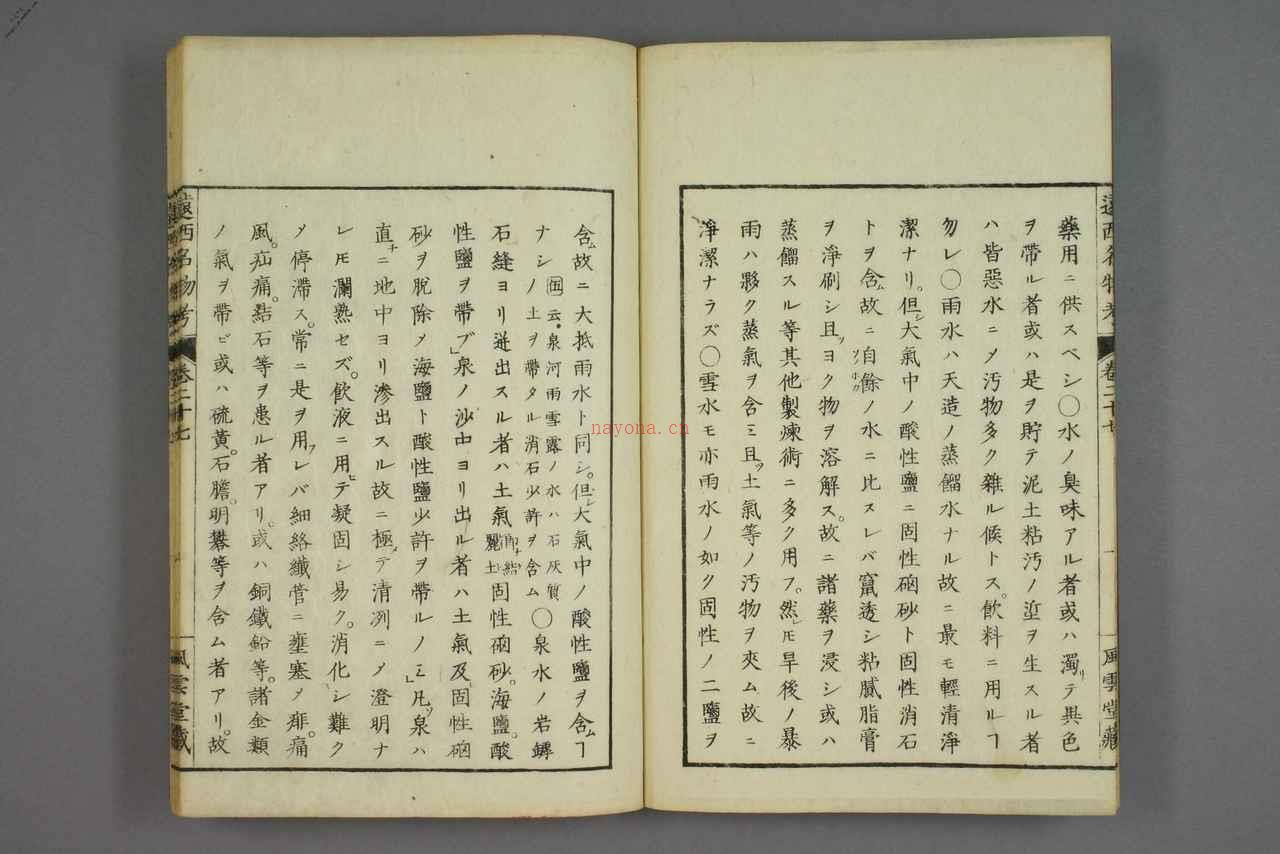 遠西名物考 卷二十七 風雲堂藏
藥用ニ供スベシ〇水ノ臭味アル者或ハ濁リテ異色
ヲ帶ル者或ハ是ヲ貯テ泥土粘汚ノ渣ヲ生スル者
ハ皆惡水ニメ汚物多ク雜ル候トス。飲料ニ用ルヿ
勿レ〇雨水ハ天造ノ蒸餾水ナル故ニ最モ輕清淨
潔ナリ。但シ大氣中ノ酸性鹽ニ固性硇砂ト固性消石
トヲ含ム故ニ自餘ノ水ニ比スレバ竄透シ粘膩脂膏
ヲ淨刷シ且ツヨク物ヲ溶解ス。故ニ諸藥ヲ浸シ或ハ
蒸餾スル等其他製煉術ニ多ク用フ。然レ𪜈旱後ノ暴
雨ハ夥ク蒸氣ヲ含ミ且ツ土氣等ノ汚物ヲ夾ム故ニ
淨潔ナラズ〇雪水モ亦雨水ノ如ク固性ノ二鹽ヲ
含ム故ニ大抵雨水ト同シ。但シ大氣中ノ酸性鹽ヲ含ムヿ
ナシ云泉河雨雪露ノ水ハ石灰質ノ土ヲ帶タル消石少許ヲ含ム〇泉水ノ岩罅
石縫ヨリ迸出スル者ハ土氣固性硇砂。海鹽。酸
性鹽ヲ帶ブ」泉ノ沙中ヨリ出ル者ハ土氣及ビ固性硇
砂ヲ脫除メ海鹽ト酸性鹽少許ヲ帶ルノミ」凡ソ泉ハ
直ニ地中ヨリ滲出スル故ニ極メテ清冽ニメ澄明ナ
レ𪜈瀾熟セズ。飲液ニ用ヒテ凝固シ易ク。消化シ難ク
メ停滯ス。常ニ是ヲ用フレバ細絡纖管ニ壅塞メ痱痛
風。疝痛。結石等ヲ患ル者アリ。或ハ銅鐵鉛等。諸金類
ノ氣ヲ帶ビ或ハ硫黃。石膽。明礬等ヲ含ム者アリ。故
遠西名物考 卷二十七 風雲堂藏
nayona.cn